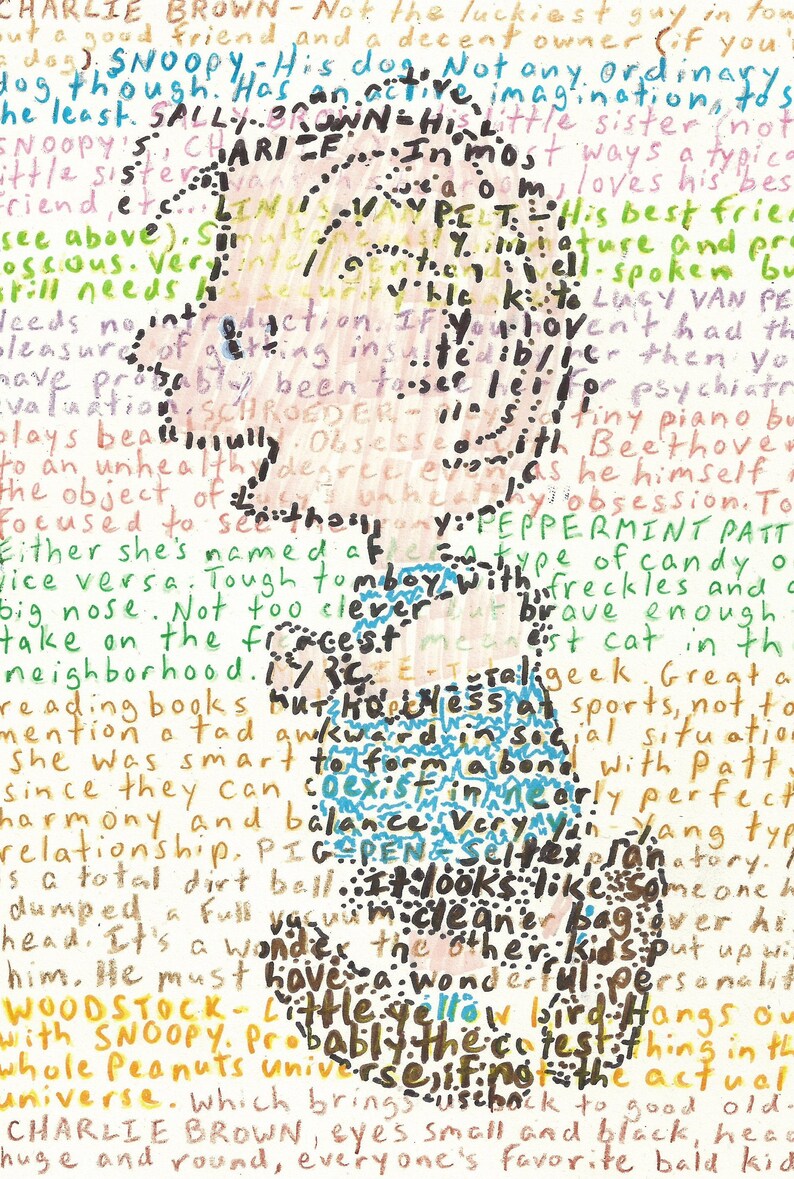 CHARLIE BROWN - Not the luckiest guy in tow
but a good friend and a decent owner (if you'r
a dog). SNOOPY - His dog. Not any ordinary
dog though. Has an active imagination, to s
the least. SALLY BROWN - His little sister (not
SNOOPY'S, CHARLIE In most ways a typica
little sister loves his best
friend, etc... LINUS VAN PELT - His best frien
(see above). Simultaneously immature and pr
Very intelligent and well-spoken bu
still needs his security blanket to LUCY VAN PE
Needs no introduction. If you haven't had th
pleasure of getting insulted by her then yo
have probably been to see her for psychiatri
evaluation. SCHROEDER - Plays a tiny piano bu
plays beautifully. Obsessed with Beethoven
to an unhealthy degree even as he himself i
the object of Lucy's unhealthy obsession. To
focused to see the irony. PEPPERMINT PATT
Either she's named after a type of candy o
vice versa. Tough tomboy with freckles and a
big nose. Not too clever but brave enough
take on the fiercest meanest cat in th
neighborhood. MARCIE - Total geek. Great a
reading books but hopeless at sports, not to
mention a tad awkward in social situation
she was smart to form a bond with Patty
since they can coexist in near perfect
harmony and balance. Very Yin-Yang typ
relationship. PIG-PEN - Self explanatory.
is a total dirt ball. It looks like someone h
dumped a full vacuum cleaner bag over hi
head. It's a wonder the other kids put up wi
him. He must have a wonderful personalit
WOODSTOCK - Little yellow bird. Hangs ou
with SNOOPY. Probably the cutest thing in th
whole Peanuts universe, if not the actual
universe. Which brings us back to good old
CHARLIE BROWN, eyes small and black, head
huge and round, everyone's favorite bald kid